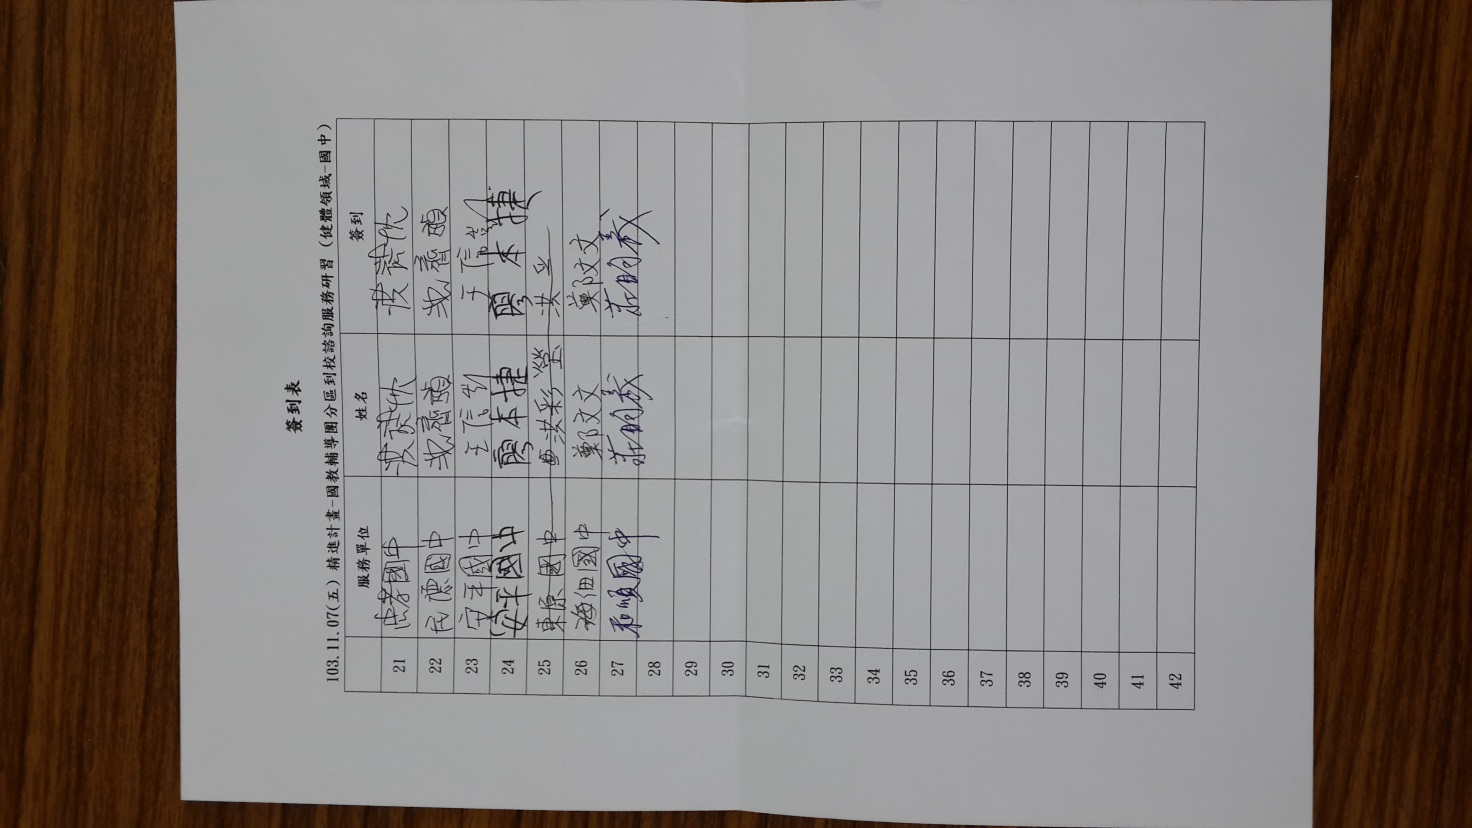 簽到表
103.11.07(五)精進計畫-國教輔導團分區到校諮詢服務研習（健體領域-國中）
服務單位 姓名 簽到
21 忠孝國中
22 民德國中
23 安平國中 王信
24 安平國中 廖本捷 廖本捷
25 東原國中 洪彩瑩 洪
26 海佃國中 鄭文文 鄭文文
27 和順國中 莊明義 莊明義
28
29
30
31
32
33
34
35
36
37
38
39
40
41
42